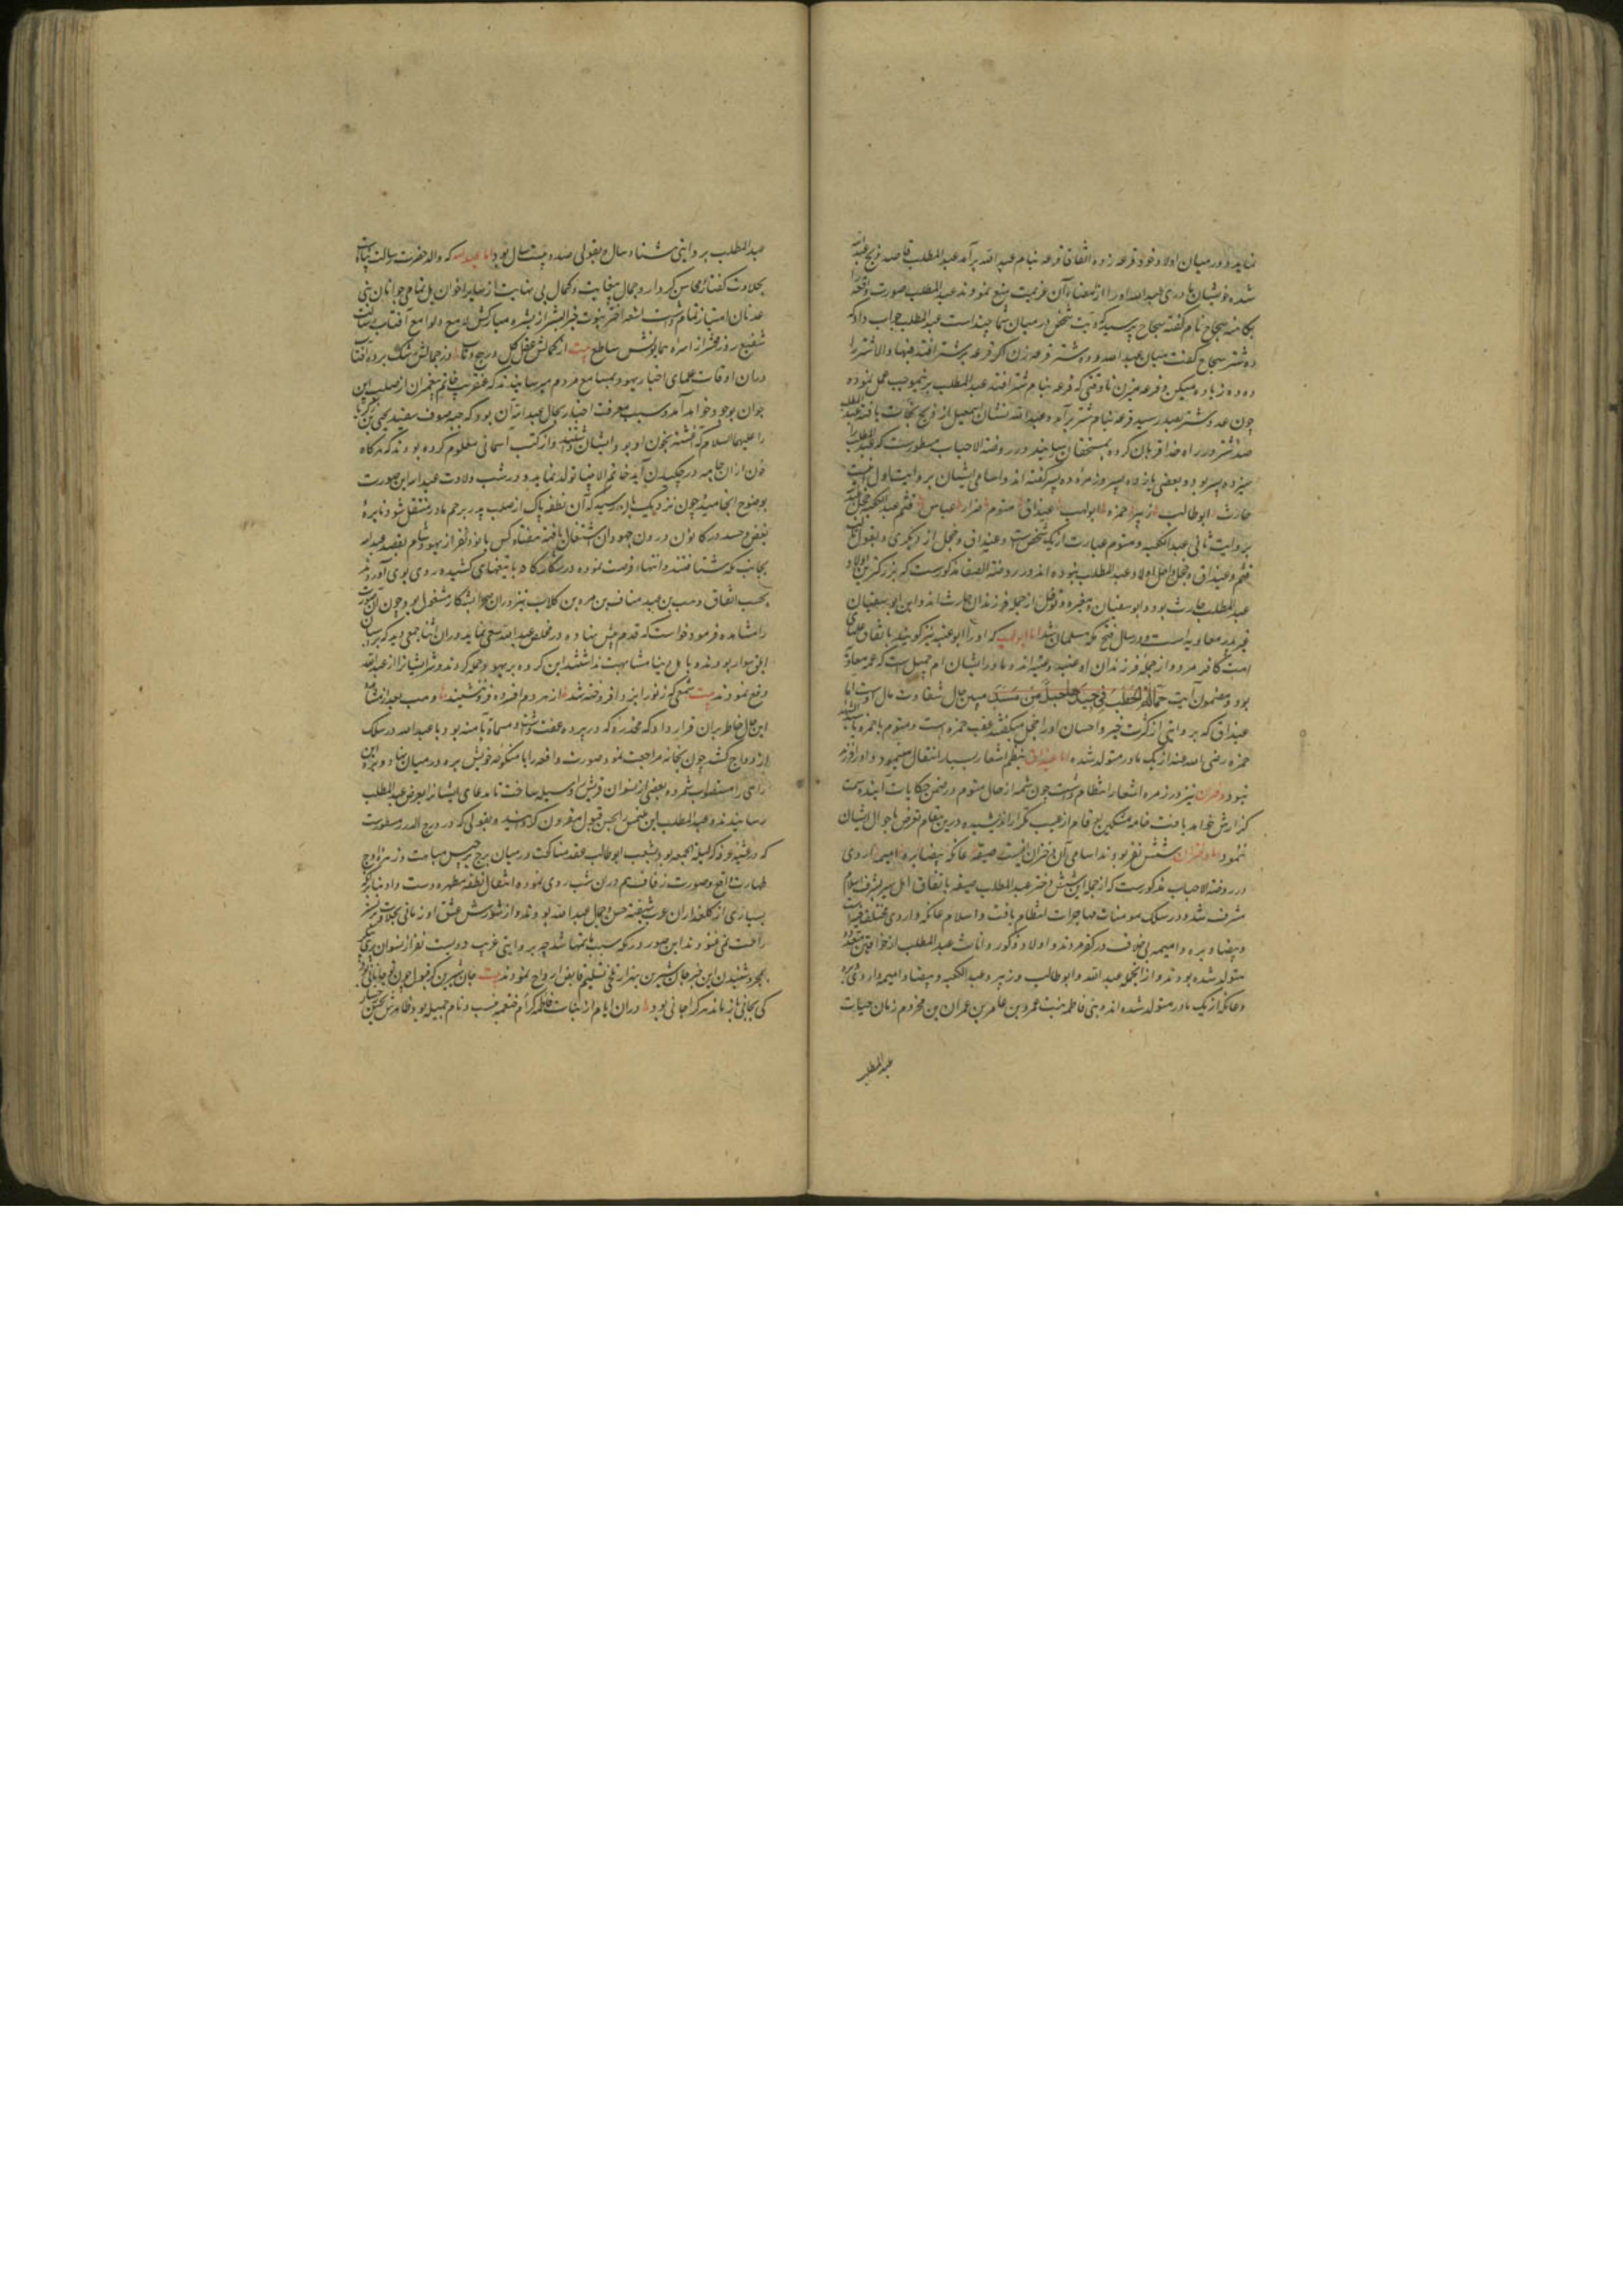 نماید و در میان اولاد خود قرعه زده اتفاقا قرعه بنام عبد الله برآمد عبد المطلب قاصد ذبح عبد الله
شده خویشان مادری عبد الله او را از امضاء آن عزیمت منع نمودند عبد المطلب صورت واقعه را
بکاهنه سجاح نام گفته سجاح پرسید که دیت شخص در میان شما چند است عبد المطلب جواب داد که
ده شتر سجاح گفت میان عبد الله و ده شتر قرعه زن اگر قرعه بر شتر افتد فبها والا شتر را
ده ده زیاده میکن و قرعه میزن تا وقتی که قرعه بنام شتر افتد عبد المطلب برینموجب عمل نموده
چون عدد شتر بصد رسید قرعه بنام شتر برآمد و عبد الله نشان اسمعیل از ذبح نجات یافته عبد المطلب
صد شتر در راه خدا قربان کرده بمستحقان رسانید و در روضة الاحباب مسطورست که عبد المطلب را
سیزده پسر بود و بعضی یازده پسر و زمره ده پسر گفته اند و اسامی ایشان بر روایت اول اینست
حارث ابو طالب زبیر حمزه ابو لهب غیداق مقوم ضرار عباس قثم عبد الکعبه حجل عبد الله
بروایت ثانی عبد الکعبه و مقوم عبارت از یک شخص است و غیداق و حجل از دیگری و بقول ثالث
قثم و غیداق و حجل داخل اولاد عبد المطلب نبوده اند و در روضة الصفا مذکورست که بزرگترین اولاد
عبد المطلب حارث بود و ابو سفیان و مغیره و نوفل از جمله فرزندان حارث اند و این ابو سفیان
غیر پدر معاویه است و در سال فتح مکه مسلمان شد اما ابو لهب که او را ابو عتبه نیز گویند باتفاق علمای
امت کافر مرد و از جمله فرزندان او عتبه و عتیبه اند و مادر ایشان ام جمیل است که عمه معاویه
بود و مضمون آیت حمالة الحطب فی جیدها حبل من مسد مبین حال شقاوت مآل اوست اما
غیداق که بروایتی از کثرت خیر و احسان او را حجل میگفتند عقب حمزه است و مقوم با حمزه سید الشهدا
حمزه رضی الله عنه از یک مادر متولد شده اما غیداق بنظم اشعار بسیار اشتغال مینمود و او را فرزند
نبود و ضرار نیز در زمره اشعار انتظام داشت چون شمه از حال مقوم در ضمن حکایات آینده سمت
گزارش خواهد یافت خامه مشکین ارقام از عیب تکرار اندیشیده درین مقام تعرض باحوال ایشان
ننمود اما دختران شش نفر بودند اسامی آن دختران اینست صفیه عاتکه بیضا بره امیمه اروی
در روضة الاحباب مذکورست که از جمله این شش دختر عبد المطلب صفیه باتفاق اهل سیر بشرف اسلام
مشرف شد و در سلک مومنات مهاجرات انتظام یافت و اسلام عاتکه و اروی مختلف فیه است
و بیضا و بره و امیمه بی خلاف در کفر مردند و اولاد ذکور و اناث عبد المطلب از خواتین متعدده
متولد شده بودند و از آنجمله عبد الله و ابو طالب و زبیر و عبد الکعبه و بیضا و امیمه و اروی و بره
و عاتکه از یک مادر متولد شده اند و هی فاطمه بنت عمرو بن عامر بن عمران بن مخزوم زمان حیات
عبد المطلب
عبد المطلب بروایتی هشتاد سال و بقولی صد و بیست سال بود اما عبد الله که والد حضرت رسالت پناهست
بحلاوت گفتار و محاسن کردار و جمال بغایت و کمال بی نهایت از سایر اخوان بل تمامی جوانان بنی
عدنان امتیاز تمام داشت اشعه اختر نبوت خیر البشر از بشره مبارکش لامع و لوامع آفتاب رسالت
شفیع روز محشر از اسره همایونش ساطع بیت از کمالش عقل کل در پیچ و تاب وز جمالش رشک برده آفتاب
دران اوقات علمای اخبار یهود بمسامع مردم میرسانیدند که عنقریب خاتم پیغمبران از صلب این
جوان بوجود خواهد آمد و سبب معرفت احبار بحال عبد الله آن بود که جبه صوف سفید یحیی بن زکریا
را علیهما السلام که آغشته بخون او بود ایشان داشتند و از کتب آسمانی معلوم کرده بودند که هر گاه
خون ازان جامه در چکیدن آید خاتم الانبیا تولد نماید و در شب ولادت عبد الله این صورت
بوضوح انجامید و چون نزدیک بان رسید که آن نطفه پاک از صلب پدر برحم مادر منتقل شود نایره
بغض و حسد در کانون درون جهودان اشتعال یافته هفتاد کس یا نود نفر از یهود شام بقصد عبد الله
بجانب مکه شتافتند و انتهاز فرصت نموده در شکارگاه با تیغهای کشیده روی بوی آوردند
بحسب اتفاق وهب بن عبد مناف بن مره بن کلاب نیز دران صحرا بشکار مشغول بود چون آن صورت
را مشاهده فرمود خواست که قدم پیش نهاده در خلاص عبد الله سعی نماید دران اثنا جمعی دید که بر اسبان
ابلق سوار بودند و باهل دنیا مشابهت نداشتند این گروه بر یهود حمله کردند و شر ایشانرا از عبد الله
دفع نمودند بیت شمعی که ز نور ایزد افروخته شد از مردم افسرده فرو ننشیند و وهب بعد از مشاهده
این حال خاطر بران قرار داد که مخدره که در پرده عفت داشت و مسماة بآمنه بود با عبد الله در سلک
ازدواج کشد چون بخانه مراجعت نمود صورت واقعه را با منکوحه خویش بره در میان نهاد و بره این
رای را مستصوب شمرده بعضی از نسوان قریش را وسیله ساخت تا مدعای ایشانرا بعرض عبد المطلب
رسانیدند و عبد المطلب این ملتمس را بحسن قبول مقرون گردانید و بقولی که در درج الدرر مسطورست
که در عشیه عرفه که لیلة الجمعه بود بشعب ابو طالب عقد مناکحت در میان برج برجیس مباهات و زهره اوج
طهارت واقع و صورت زفاف هم دران شب روی نموده انتقال نطفه مطهره دست داد بنابرانکه
بسیاری از گلعذاران عرب شیفته حسن و جمال عبد الله بودند و از شورش عشق او زمانی بحلاوت بستر
راحت نمی غنودند این صورت رنگ سبب غمها شد چه بروایتی غریب دویست نفر از نسوان پری پیکر
بمجرد شنیدن این خبر جان شیرین بهزار تلخی تسلیم قابض ارواح نمودند بیت
کی بجانی باز ماند هر کرا جانی بود دران ایام از بنات فاطمه که ام ختعمیه نسب و نام جمیله بود ظاهرش بحسن